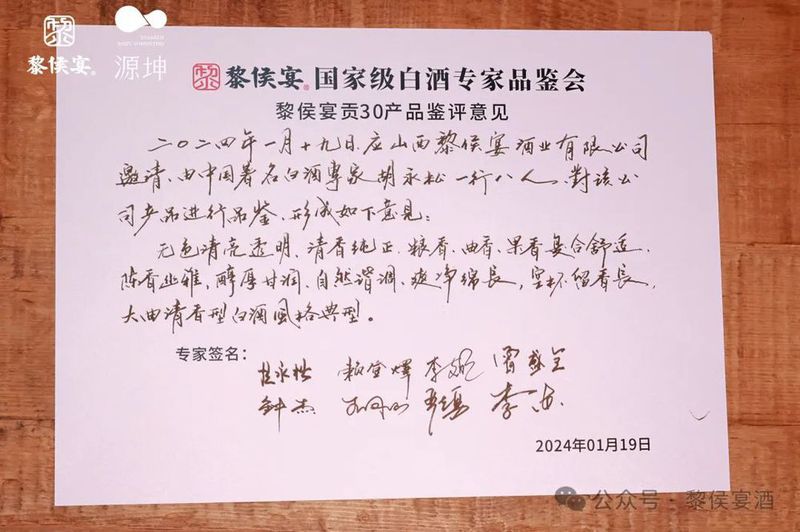 黎侯宴®
源坤
黎侯宴®国家级白酒专家品鉴会
黎侯宴贡30产品鉴评意见
二〇二四年一月十九日应山西黎侯宴酒业有限公司
邀请、由中国著名白酒专家胡永松一行八人、對该公
司产品进行品鉴、形成如下意见：
无色清亮透明、清香纯正、糠香、曲香、果香复合舒适、
陈香幽雅，醇厚甘润、自然谐调、爽净绵長，空杯留香長，
大曲清香型白酒风格典型。
专家签名：
胡永松 赖登燡 李 曾祖全
钟杰 李
2024年01月19日
公众号·黎侯宴酒